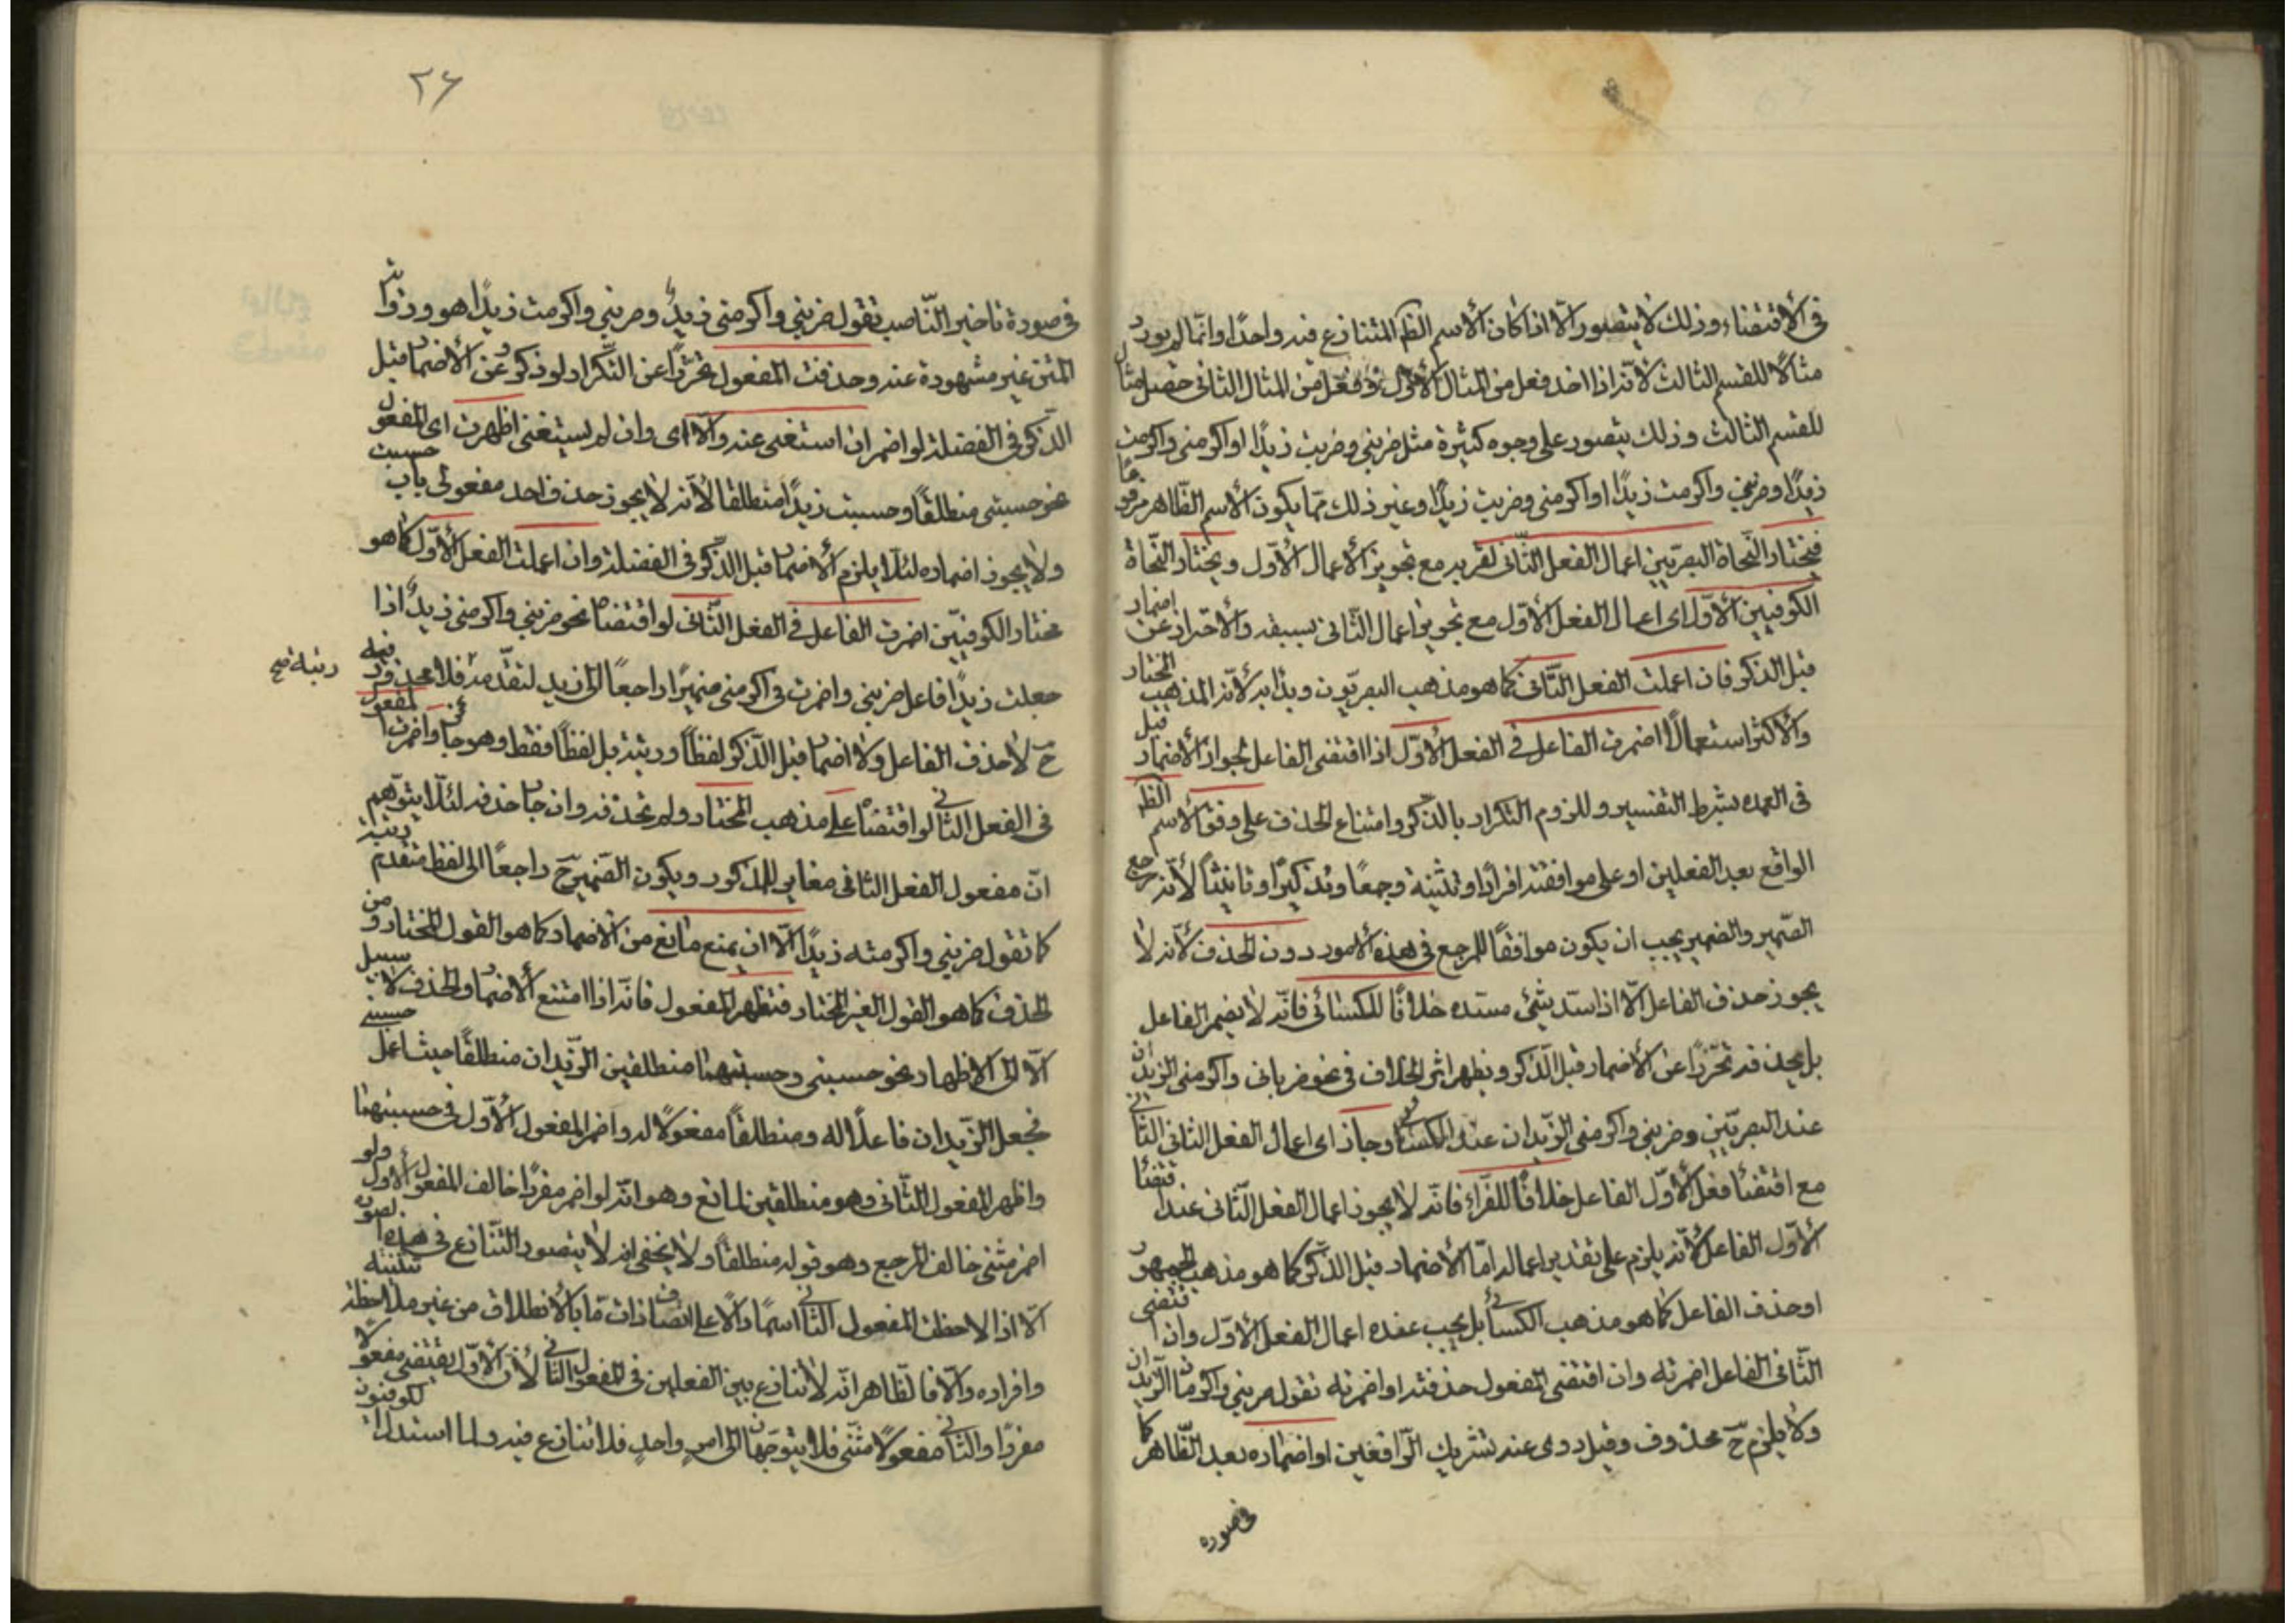 في الأقتضاء وذلك لا يتصور الّا اذا كان الأسم الظ المتنازع فيه واحدًا وانّما لم يورد
مثالًا للقسم الثالث لأنّه اذا اخذ فعل من المثال الأوّل وفعل من المثال الثاني حصل مثال
للقسم الثالث وذلك يتصور على وجوه كثيرة مثل ضربني وضربت زيدًا او اكرمني واكرمت
زيدًا وضربني واكرمت زيدًا او اكرمني وضربت زيدًا وغير ذلك ممّا يكون الأسم الظّاهر مرفوعًا
فيختار النّحاة البصريّين اعمال الفعل الثّاني لقربه مع تجويز الأعمال الأوّل ويختار النّحاة
الكوفيين الأوّل اى اعمال الفعل الأوّل مع تجويز اعمال الثّاني بسبقه والأحتراز عن اضمار
قبل الذكر فان اعملت الفعل الثّاني كما هو مذهب البصريّون وبدأ به لأنّه المذهب المختار
والأكثر استعمالًا اضمرت الفاعل في الفعل الأوّل اذا اقتضى الفاعل لجواز الأضمار قبل
في العمده بشرط التفسير وللزوم التكرار بالذّكر وامتناع الحذف على وفق الأسم الظ
الواقع بعد الفعلين او على موافقته افرادًا وتثنية وجمعًا وتذكيرًا وتانيثًا لأنّه مرجع
الضّمير والضمير يجب ان يكون موافقًا للمرجع في هذه الأمور دون الحذف لأنّه لا
يجوز حذف الفاعل الّا اذا سدّ شئ مسدّه خلافًا للكسائي فانّه لا يضمر الفاعل
بل يحذفه تحرّزًا عن الأضمار قبل الّذكر ويظهر اثر الخلاف في نحو ضرباني واكرمني الزيدان
عند البصريّين وضربني واكرمني الزّيدان عند الكسائي وجاز اى اعمال الفعل الثاني الثاني
مع اقتضاء فعل الأوّل الفاعل خلافًا للفرّاء فانّه لا يجوز اعمال الفعل الثّاني عند اقتضاء
الأوّل الفاعل لأنّه يلزم على تقدير اعماله امّا الأضمار قبل الذّكر كما هو مذهب الجمهور
او حذف الفاعل كما هو مذهب الكسائي بل يجب عنده اعمال الفعل الأوّل وان اقتضى
الثّاني الفاعل اضمرته وان اقتضى المفعول حذفته او اضمرته تقول ضربني واكرماني الزّيدان
ولا يلزم ح محذوف وقيل روى عنه تشريك الرّافعين او اضماره بعد الظّاهر كما
في صوره
٢٦
في صورة تاخير النّاصب تقول ضربني واكرمني زيدٌ وضربني واكرمت زيدًا هو ورواية
المتن غير مشهورة عنه وحذفت المفعول تحرّزًا عن التّكرار لو ذكر وعن الأضمار قبل
الذّكر في الفضلة لو اضمر ان استغنى عنه والّا اى وان لم يستغنى اظهرت اى المفعول
نحو حسبني منطلقًا وحسبت زيدًا منطلقا لأنّه لا يجوز حذف احد مفعولى باب حسبت
ولا يجوز اضماره لئلّا يلزم الأضمار قبل الذّكر في الفضلة وان اعملت الفعل الأوّل كما هو
مختار الكوفيّين اضمرت الفاعل في الفعل الثّاني لو اقتضاه نحو ضربني واكرمني زيدٌ اذا
جعلت زيدًا فاعل ضربني واضمرت في اكرمني ضميرًا راجعًا الى زيد لتقدّمه رتبة فلا محذور فيه
رتبة صح
ح لا حذف الفاعل ولا اضمار قبل الذّكر لفظًا ورتبة بل لفظًا فقط وهو جائز واضمرت المفعول
في الفعل الثاني لو اقتضاه على مذهب المختار ولم تحذفه وان جاز حذفه لئلّا يتوّهم
انّ مفعول الفعل الثاني مغاير للمذكور ويكون الضّمير ح راجعًا الى لفظ متقدم رتبة
كما تقول ضربني واكرمته زيدًا الّا ان يمنع مانع من الأضمار كما هو القول المختار ومن
الحذف كما هو القول الغير المختار فتظهر المفعول فانّه اذا امتنع الأضمار والحذف لا سبيل
الّا الى الاظهار نحو حسبني وحسبتهما منطلقين الزّيدان منطلقًا حيث اعمل حسبني
فجعل الزّيدان فاعلًا له ومنطلقًا مفعولًا له واضمر المفعول الأوّل في حسبتهما
واظهر المفعول الثّاني وهو منطلقين لمانع وهو انّه لو اضمر مفردًا خالف المفعول الأول ولو
اضمر مثنى خالف المرجع وهو قوله منطلقًا ولا يخفى انه لا يتصور التّنازع في هذه الصورة
الّا اذا لاحظت المفعول الثاني اسمًا دالًّا على اتصاف ذات مّا بالأنطلاق من غير ملاحظة تثنيته
وافراده والّا فالظّاهر انّه لا تنازع بين الفعلين في المفعول الثاني لأن الأوّل يقتضى مفعولًا
مفردًا والثاني مفعولًا مثنّى فلا يتوجّهان الى امرٍ واحدٍ فلا تنازع فيه ولما استدل الكوفيون